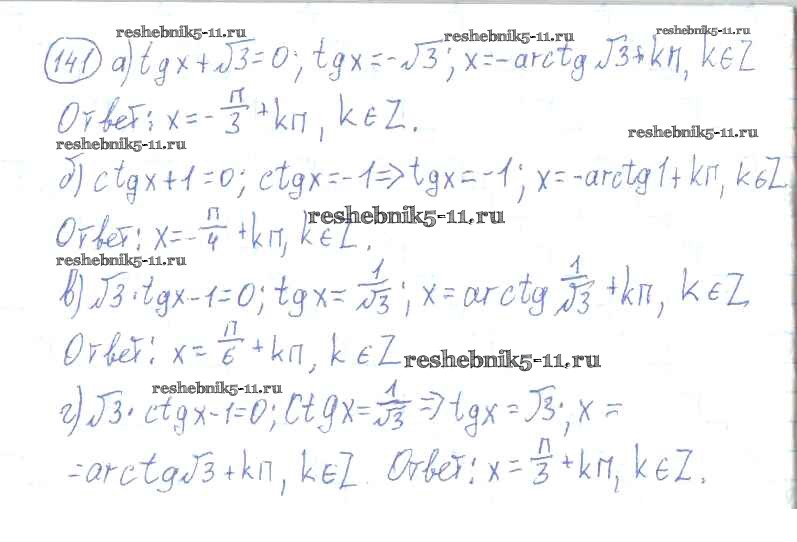 reshebnik5-11.ru reshebnik5-11.ru reshebnik5-11.ru
141 а) tgx+√3=0; tgx=-√3; x=-arctg√3+kπ, k∈Z
Ответ: x=-π/3+kπ, k∈Z.
reshebnik5-11.ru reshebnik5-11.ru
б) ctgx+1=0; ctgx=-1=>tgx=-1; x=-arctg1+kπ, k∈Z
reshebnik5-11.ru
Ответ: x=-π/4+kπ, k∈Z.
reshebnik5-11.ru
в) √3·tgx-1=0; tgx=1/√3; x=arctg 1/√3+kπ, k∈Z
Ответ: x=π/6+kπ, k∈Z
reshebnik5-11.ru
reshebnik5-11.ru
г) √3·ctgx-1=0; Ctgx=1/√3=>tgx=√3; x=
=arctg√3+kπ, k∈Z. Ответ: x=π/3+kπ, k∈Z.